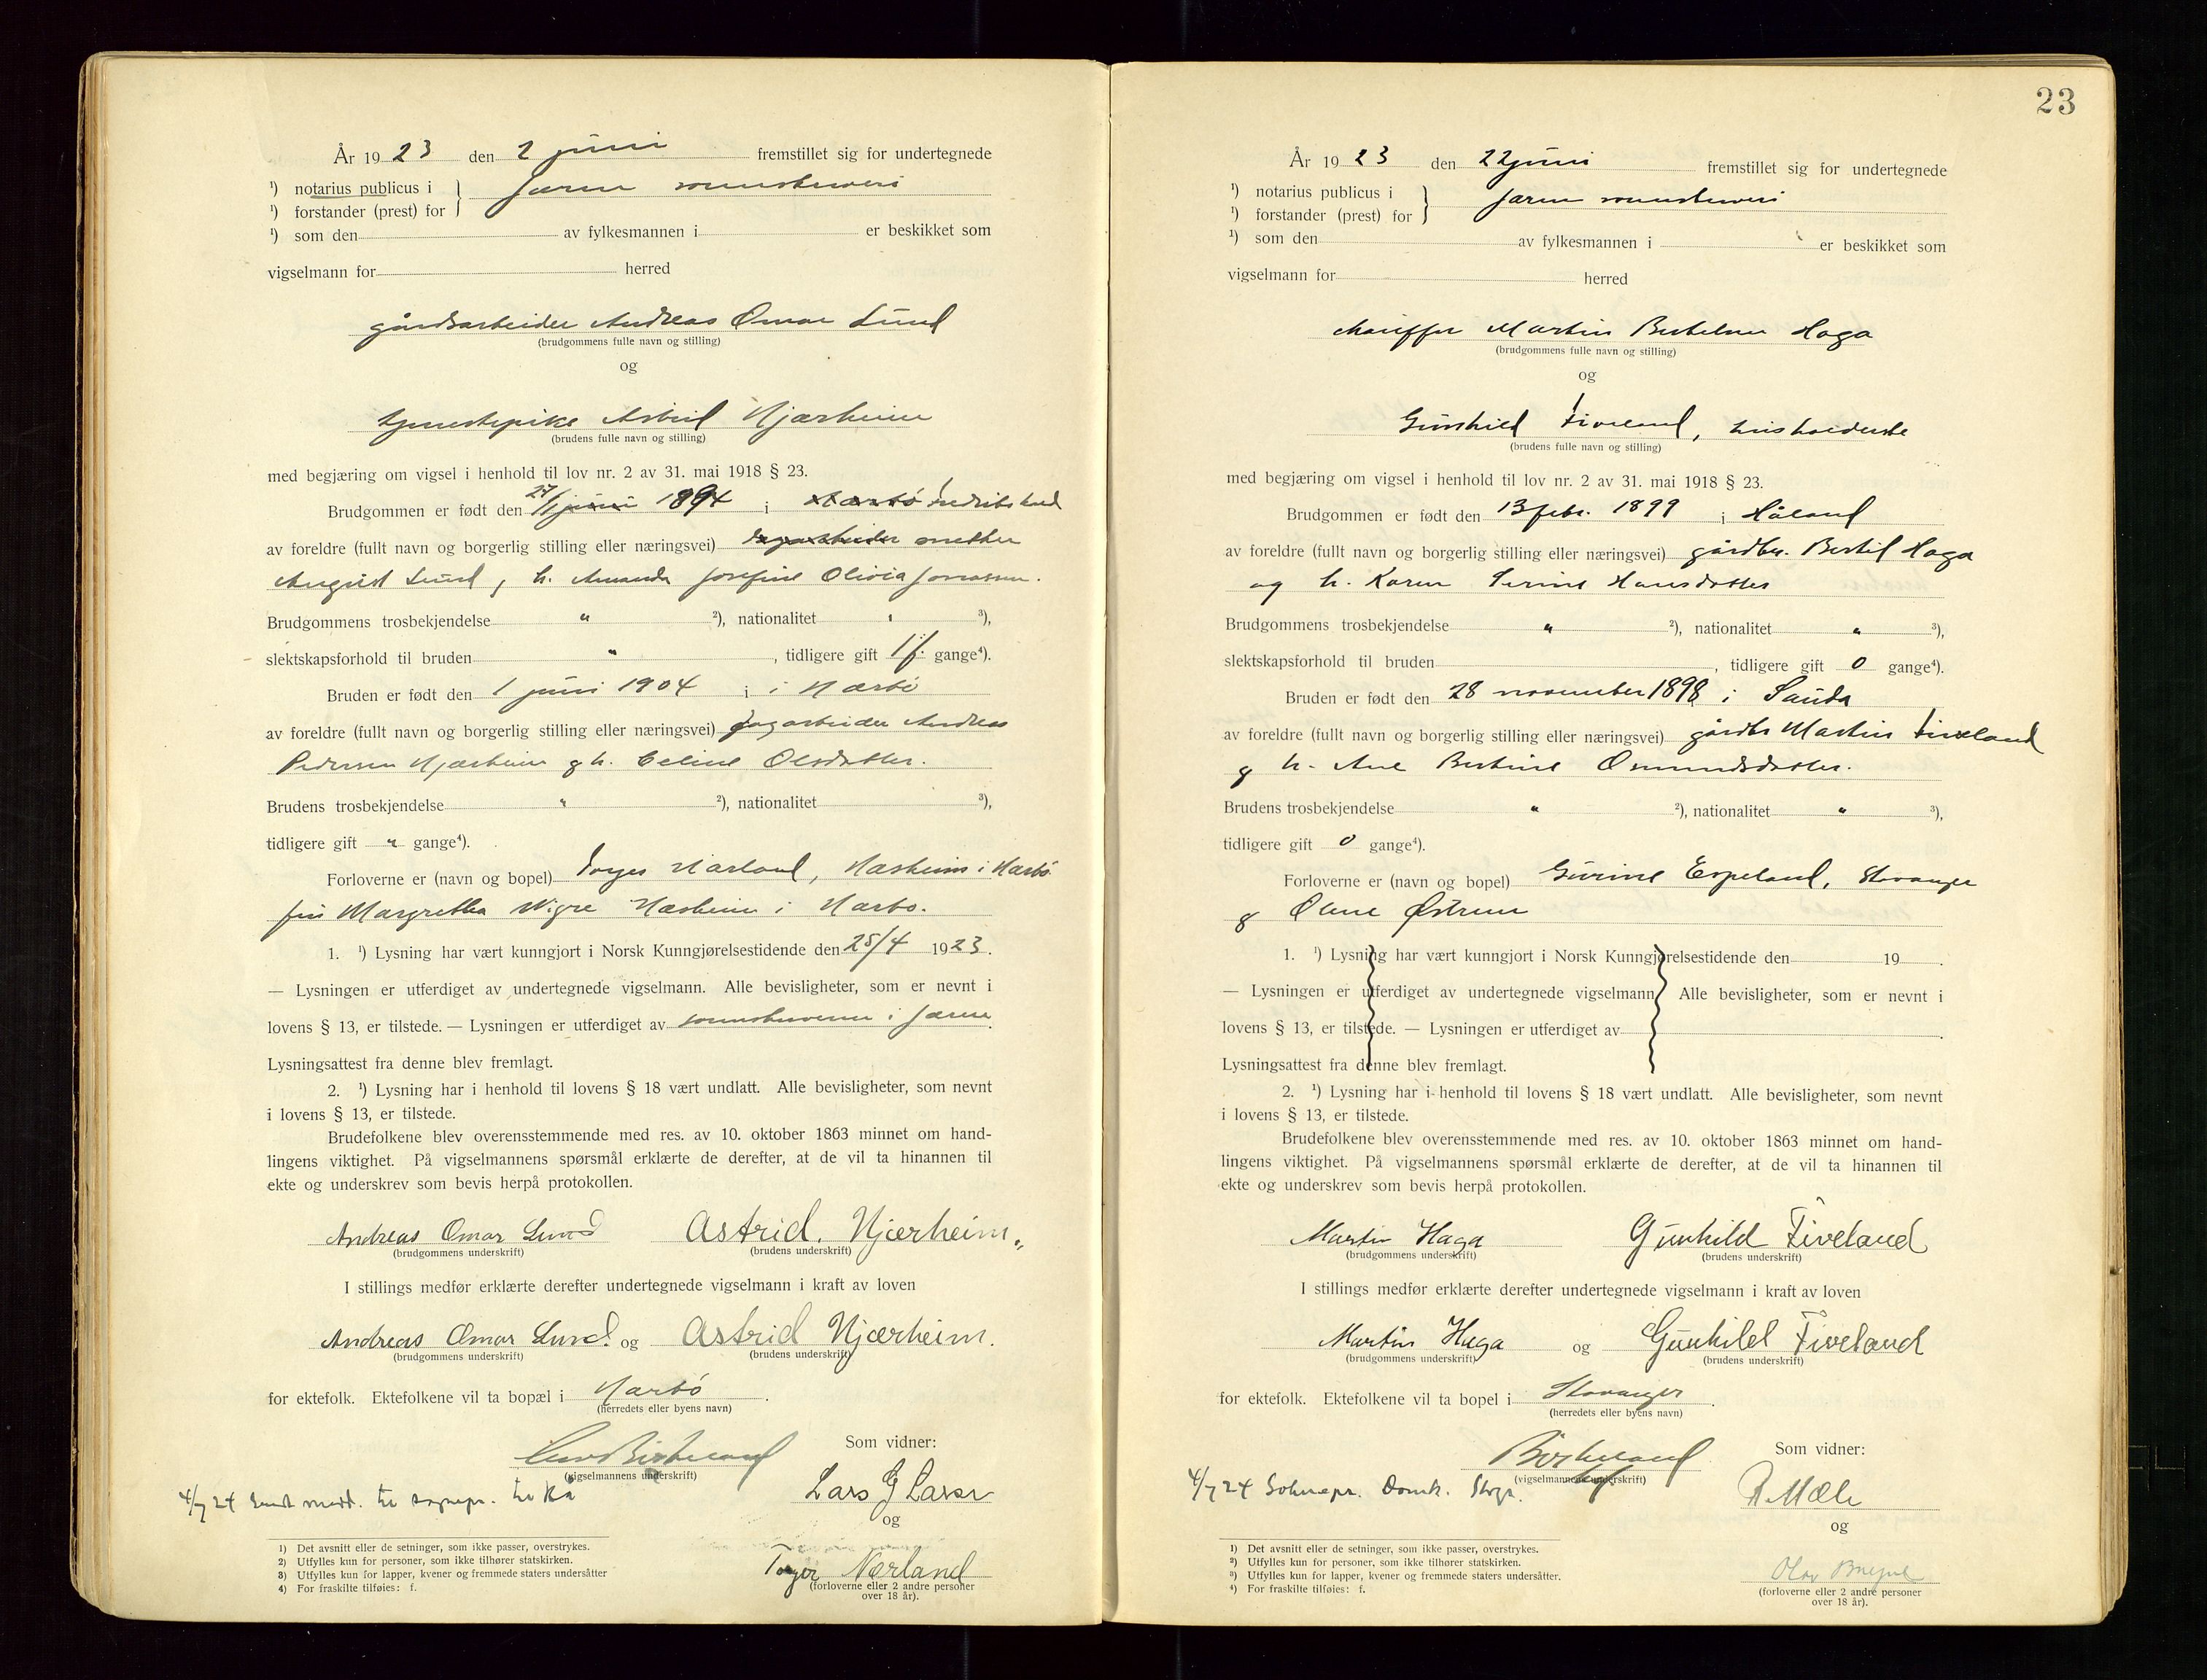 År 19 23 den 2 juni fremstillet sig for undertegnede
¹) notarius publicus i } Jæren sorenskriveri
¹) forstander (prest) for
¹) som den av fylkesmannen i er beskikket som
vigselmann for herred
gårdsarbeider Andreas Omar Lund
(brudgommens fulle navn og stilling)
og
tjenestepike Astrid Njærheim
(brudens fulle navn og stilling)
med begjæring om vigsel i henhold til lov nr. 2 av 31. mai 1918 § 23.
Brudgommen er født den 27/ juni 1894 i Nærbø Fredrikshald
av foreldre (fullt navn og borgerlig stilling eller næringsvei) dagarbeider snekker
August Lund, h. Amanda Josefine Olivia Jonassen.
Brudgommens trosbekjendelse " ²), nationalitet " ³),
slektskapsforhold til bruden " , tidligere gift 1 f. gange⁴).
Bruden er født den 1 juni 1904 i i Nærbø
av foreldre (fullt navn og borgerlig stilling eller næringsvei) dagarbeider Andreas
Pedersen Njærheim g h. Celine Olsdatter.
Brudens trosbekjendelse " ²), nationalitet ³),
tidligere gift " gange⁴).
Forloverne er (navn og bopel) Torger Nærland, Næsheim i Nærbø
fru Margretha Wigre Næsheim i Nærbø.
1. ¹) Lysning har vært kunngjort i Norsk Kunngjørelsestidende den 25/4 1923.
— Lysningen er utferdiget av undertegnede vigselmann. Alle bevisligheter, som er nevnt i
lovens § 13, er tilstede. — Lysningen er utferdiget av sorenskriveren i Jæren.
Lysningsattest fra denne blev fremlagt.
2. ¹) Lysning har i henhold til lovens § 18 vært undlatt. Alle bevisligheter, som nevnt
i lovens § 13, er tilstede.
Brudefolkene blev overensstemmende med res. av 10. oktober 1863 minnet om hand-
lingens viktighet. På vigselmannens spørsmål erklærte de derefter, at de vil ta hinannen til
ekte og underskrev som bevis herpå protokollen.
Andreas Omar Lund Astrid. Njærheim.
(brudgommens underskrift) (brudens underskrift)
I stillings medfør erklærte derefter undertegnede vigselmann i kraft av loven
Andreas Omar Lund. og Astrid Njærheim.
(brudgommens underskrift) (brudens underskrift)
for ektefolk. Ektefolkene vil ta bopæl i Nærbø .
(herredets eller byens navn)
Birkeland Som vidner:
(vigselmannens underskrift)
4/7 24 Sendt medd. til sognepr. til Hå Lars G Larsen
og
Torger Nærland
(forloverne eller 2 andre personer
over 18 år).
1) Det avsnitt eller de setninger, som ikke passer, overstrykes.
2) Utfylles kun for personer, som ikke tilhører statskirken.
3) Utfylles kun for lapper, kvener og fremmede staters undersåtter
4) For fraskilte tilføies: f.
23
År 19 23 den 22 juni fremstillet sig for undertegnede
¹) notarius publicus i } Jæren sorenskriveri
¹) forstander (prest) for
¹) som den av fylkesmannen i er beskikket som
vigselmann for herred
chauffør Martin Bertelsen Haga
(brudgommens fulle navn og stilling)
og
Gunhild Fiveland, husholderske
(brudens fulle navn og stilling)
med begjæring om vigsel i henhold til lov nr. 2 av 31. mai 1918 § 23.
Brudgommen er født den 13 febr. 1899 i Håland
av foreldre (fullt navn og borgerlig stilling eller næringsvei) gårdbr. Bertil Haga
og h. Karen Serine Hansdatter
Brudgommens trosbekjendelse " ²), nationalitet " ³),
slektskapsforhold til bruden , tidligere gift 0 gange⁴).
Bruden er født den 28 november 1898 i Sauda
av foreldre (fullt navn og borgerlig stilling eller næringsvei) gårdbr Martin Fiveland
g h. Ane Bertine Osmundsdatter.
Brudens trosbekjendelse " ²), nationalitet " ³),
tidligere gift 0 gange⁴).
Forloverne er (navn og bopel) Gurine Espeland, Stavanger
g Olene Østrem
1. ¹) Lysning har vært kunngjort i Norsk Kunngjørelsestidende den 19 .
— Lysningen er utferdiget av undertegnede vigselmann. Alle bevisligheter, som er nevnt i
lovens § 13, er tilstede. — Lysningen er utferdiget av .
Lysningsattest fra denne blev fremlagt.
2. ¹) Lysning har i henhold til lovens § 18 vært undlatt. Alle bevisligheter, som nevnt
i lovens § 13, er tilstede.
Brudefolkene blev overensstemmende med res. av 10. oktober 1863 minnet om hand-
lingens viktighet. På vigselmannens spørsmål erklærte de derefter, at de vil ta hinannen til
ekte og underskrev som bevis herpå protokollen.
Martin Haga Gunhild Fiveland
(brudgommens underskrift) (brudens underskrift)
I stillings medfør erklærte derefter undertegnede vigselmann i kraft av loven
Martin Haga og Gunhild Fiveland
(brudgommens underskrift) (brudens underskrift)
for ektefolk. Ektefolkene vil ta bopel i Stavanger .
(herredets eller byens navn)
Birkeland Som vidner:
(vigselmannens underskrift)
4/7 24 Sognepr. Domk. Stvgr. Mæle
og
Olav
(forloverne eller 2 andre personer
over 18 år).
¹) Det avsnitt eller de setninger, som ikke passer, overstrykes.
²) Utfylles kun for personer, som ikke tilhører statskirken.
³) Utfylles kun for lapper, kvener og fremmede staters undersåtter.
⁴) For fraskilte tilføies: f.